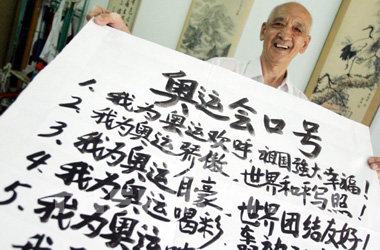 奥运会口号
1. 我为奥运欢呼，祖国强大幸福！
2. 我为奥运骄傲，世界和平写照！
3. 我为奥运自豪，世界团结友好！
4. 我为奥运喝彩
5. 我为奥运